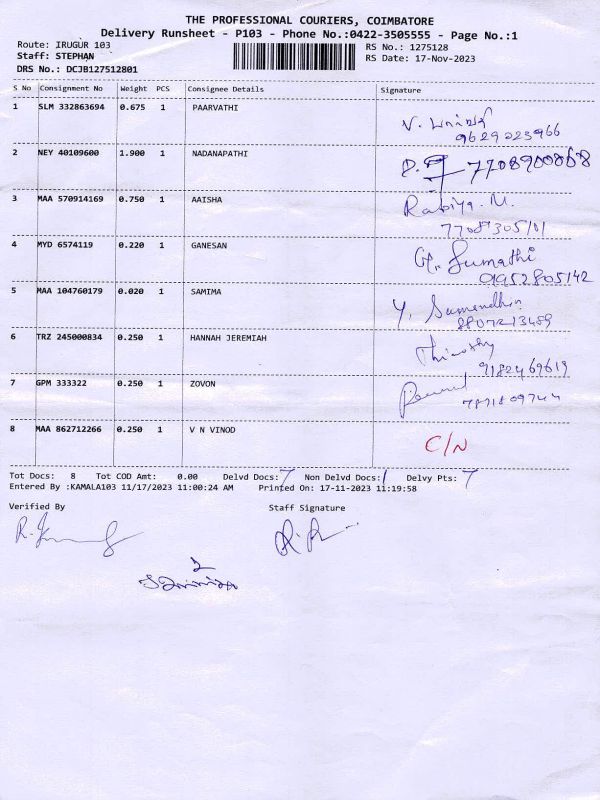 THE PROFESSIONAL COURIERS, COIMBATORE
Delivery Runsheet - P103 - Phone No.:0422-3505555 - Page No.:1
Route: IRUGUR 103 RS No.: 1275128
Staff: STEPHAN RS Date: 17-Nov-2023
DRS No.: DCJB127512801
S No Consignment No Weight PCS Consignee Details Signature
1 SLM 332863694 0.675 1 PAARVATHI
9629223966
2 NEY 40109600 1.900 1 NADANAPATHI 7708900868
3 MAA 570914169 0.750 1 AAISHA Rabiya. M.
77089305101
4 MYD 6574119 0.220 1 GANESAN Sumathi
9952805142
5 MAA 104760179 0.020 1 SAMIMA
8807213489
6 TRZ 245000834 0.250 1 HANNAH JEREMIAH Thimothy
9182469619
7 GPM 333322 0.250 1 ZOVON
7871809744
8 MAA 862712266 0.250 1 V N VINOD C/N
Tot Docs: 8 Tot COD Amt: 0.00 Delvd Docs: 7 Non Delvd Docs: 1 Delvy Pts: 7
Entered By :KAMALA103 11/17/2023 11:00:24 AM Printed On: 17-11-2023 11:19:58
Verified By Staff Signature